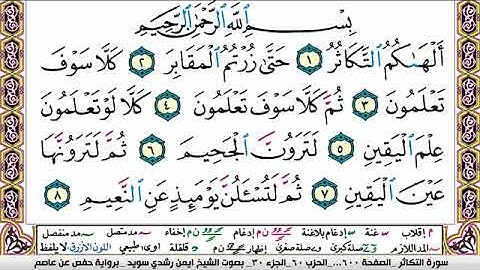 بِسْمِ ٱللَّهِ ٱلرَّحْمَٰنِ ٱلرَّحِيمِ
أَلْهَىٰكُمُ ٱلتَّكَاثُرُ ١ حَتَّىٰ زُرْتُمُ ٱلْمَقَابِرَ ٢ كَلَّا سَوْفَ
تَعْلَمُونَ ٣ ثُمَّ كَلَّا سَوْفَ تَعْلَمُونَ ٤ كَلَّا لَوْ تَعْلَمُونَ
عِلْمَ ٱلْيَقِينِ ٥ لَتَرَوُنَّ ٱلْجَحِيمَ ٦ ثُمَّ لَتَرَوُنَّهَا
عَيْنَ ٱلْيَقِينِ ٧ ثُمَّ لَتُسْـَٔلُنَّ يَوْمَئِذٍ عَنِ ٱلنَّعِيمِ ٨
م إقلاب غنة إدغام بلاغنة إدغام إخفاء مد متصل مد منفصل
المد اللازم صلة كبرى وصلة صغرى إظهار قلقلة طبيعي اللون الأزرق لا يلفظ
سورة التكاثر_الصفحة ٦٠٠_الحزب ٦٠_الجزء ٣٠_ بصوت الشيخ ايمن رشدي سويد _برواية حفص عن عاصم